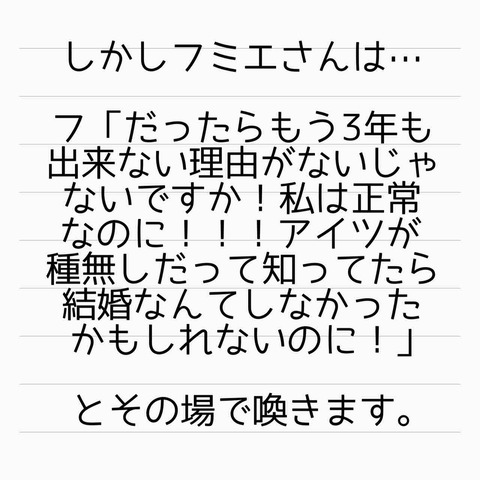 しかしフミエさんは…
フ「だったらもう3年も
出来ない理由がないじゃ
ないですか！私は正常
なのに！！！アイツが
種無しだって知ってたら
結婚なんてしなかった
かもしれないのに！」
とその場で喚きます。